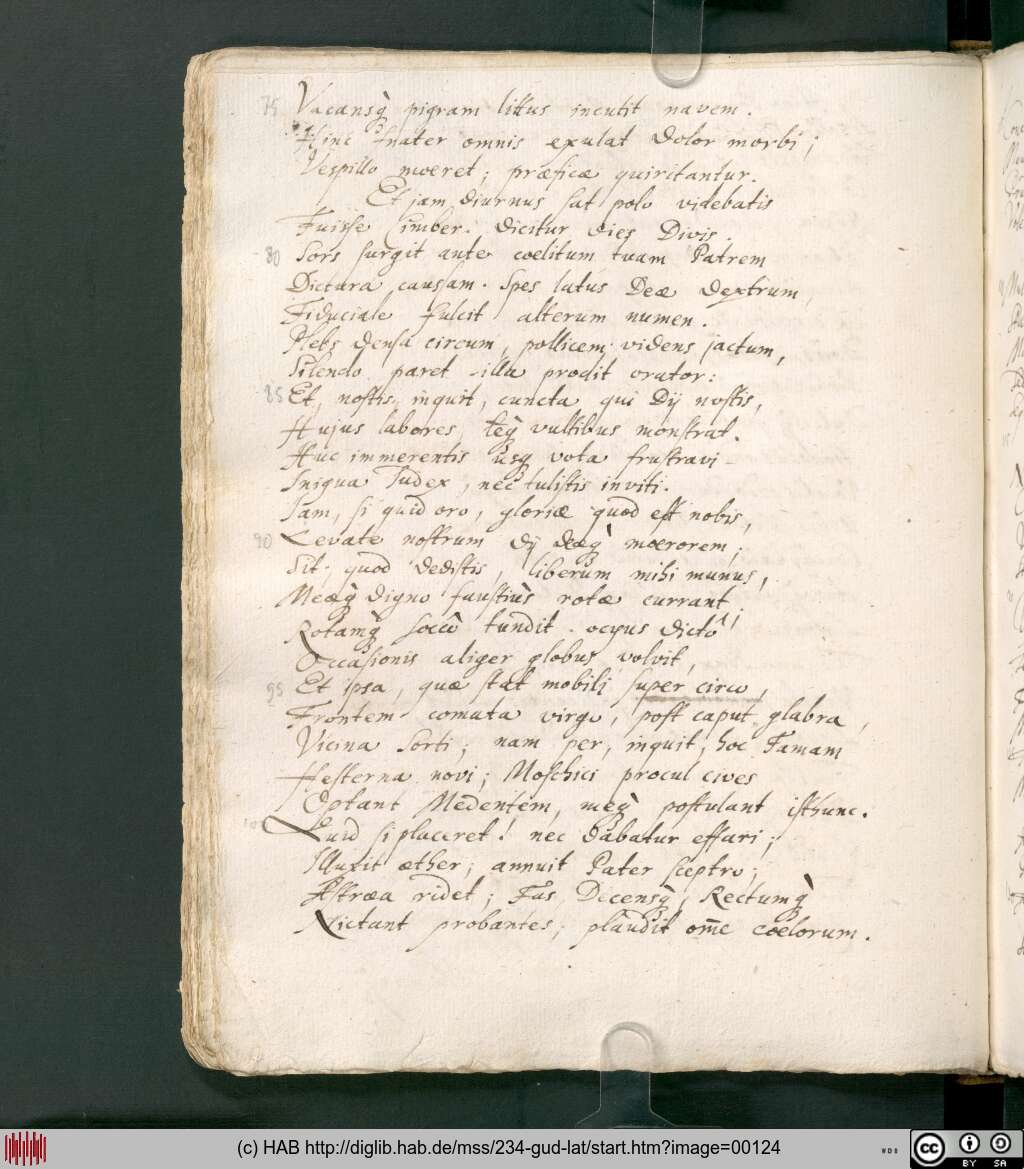 75 Vacansq̀ pigram littus incutit navem.
Hinc frater omnis exulat dolor morbi;
Vespillo moeret; præficæ quiritantur.
Et jam diurnus sat polo videbatis
Fuisse Cimber. dicitur dies Divis.
80 Sors surgit ante coelitum tuam Patrem
Dictura causam. Spes latus Deæ dextrum,
Fiduciale fulcit alterum numen.
Plebs densa circum, pollicem videns jactum,
Silendo paret illa prodit orator:
85 Et nostis, inquit, cuncta qui Dij nostis,
Hujus labores, teq̀ vultibus monstrat.
Huc immerentis usq vota frustravi
Iniqua Judex, nec tulistis inviti.
Jam, si quid oro, gloriæ quod est nobis,
90 Levate nostrum dij deæq̀ moerorem;
Sit, quod dedistis, liberum mihi munus,
Meæq̀ digno faustiùs rotæ currant
Rotamq̀ soccû tundit. ocyus dictô
Occasionis aliger globus volvit,
95 Et ipsa, quæ stat mobili super circo,
Frontem comata virgo, post caput glabra,
Vicina Sorti; nam per, inquit, hoc Famam
Hesterna novi; Moschici procul cives
Optant Medentem, meq̀ postulant isthunc.
Quid si placeret! nec dabatur effari;
Illuxit æther; annuit Pater sceptro;
Astræa ridet; Fas, Decensq̀, Rectumq̀
Nictant probantes; plaudit om̄e coelorum.
(c) HAB http://diglib.hab.de/mss/234-gud-lat/start.htm?image=00124
cc BY SA